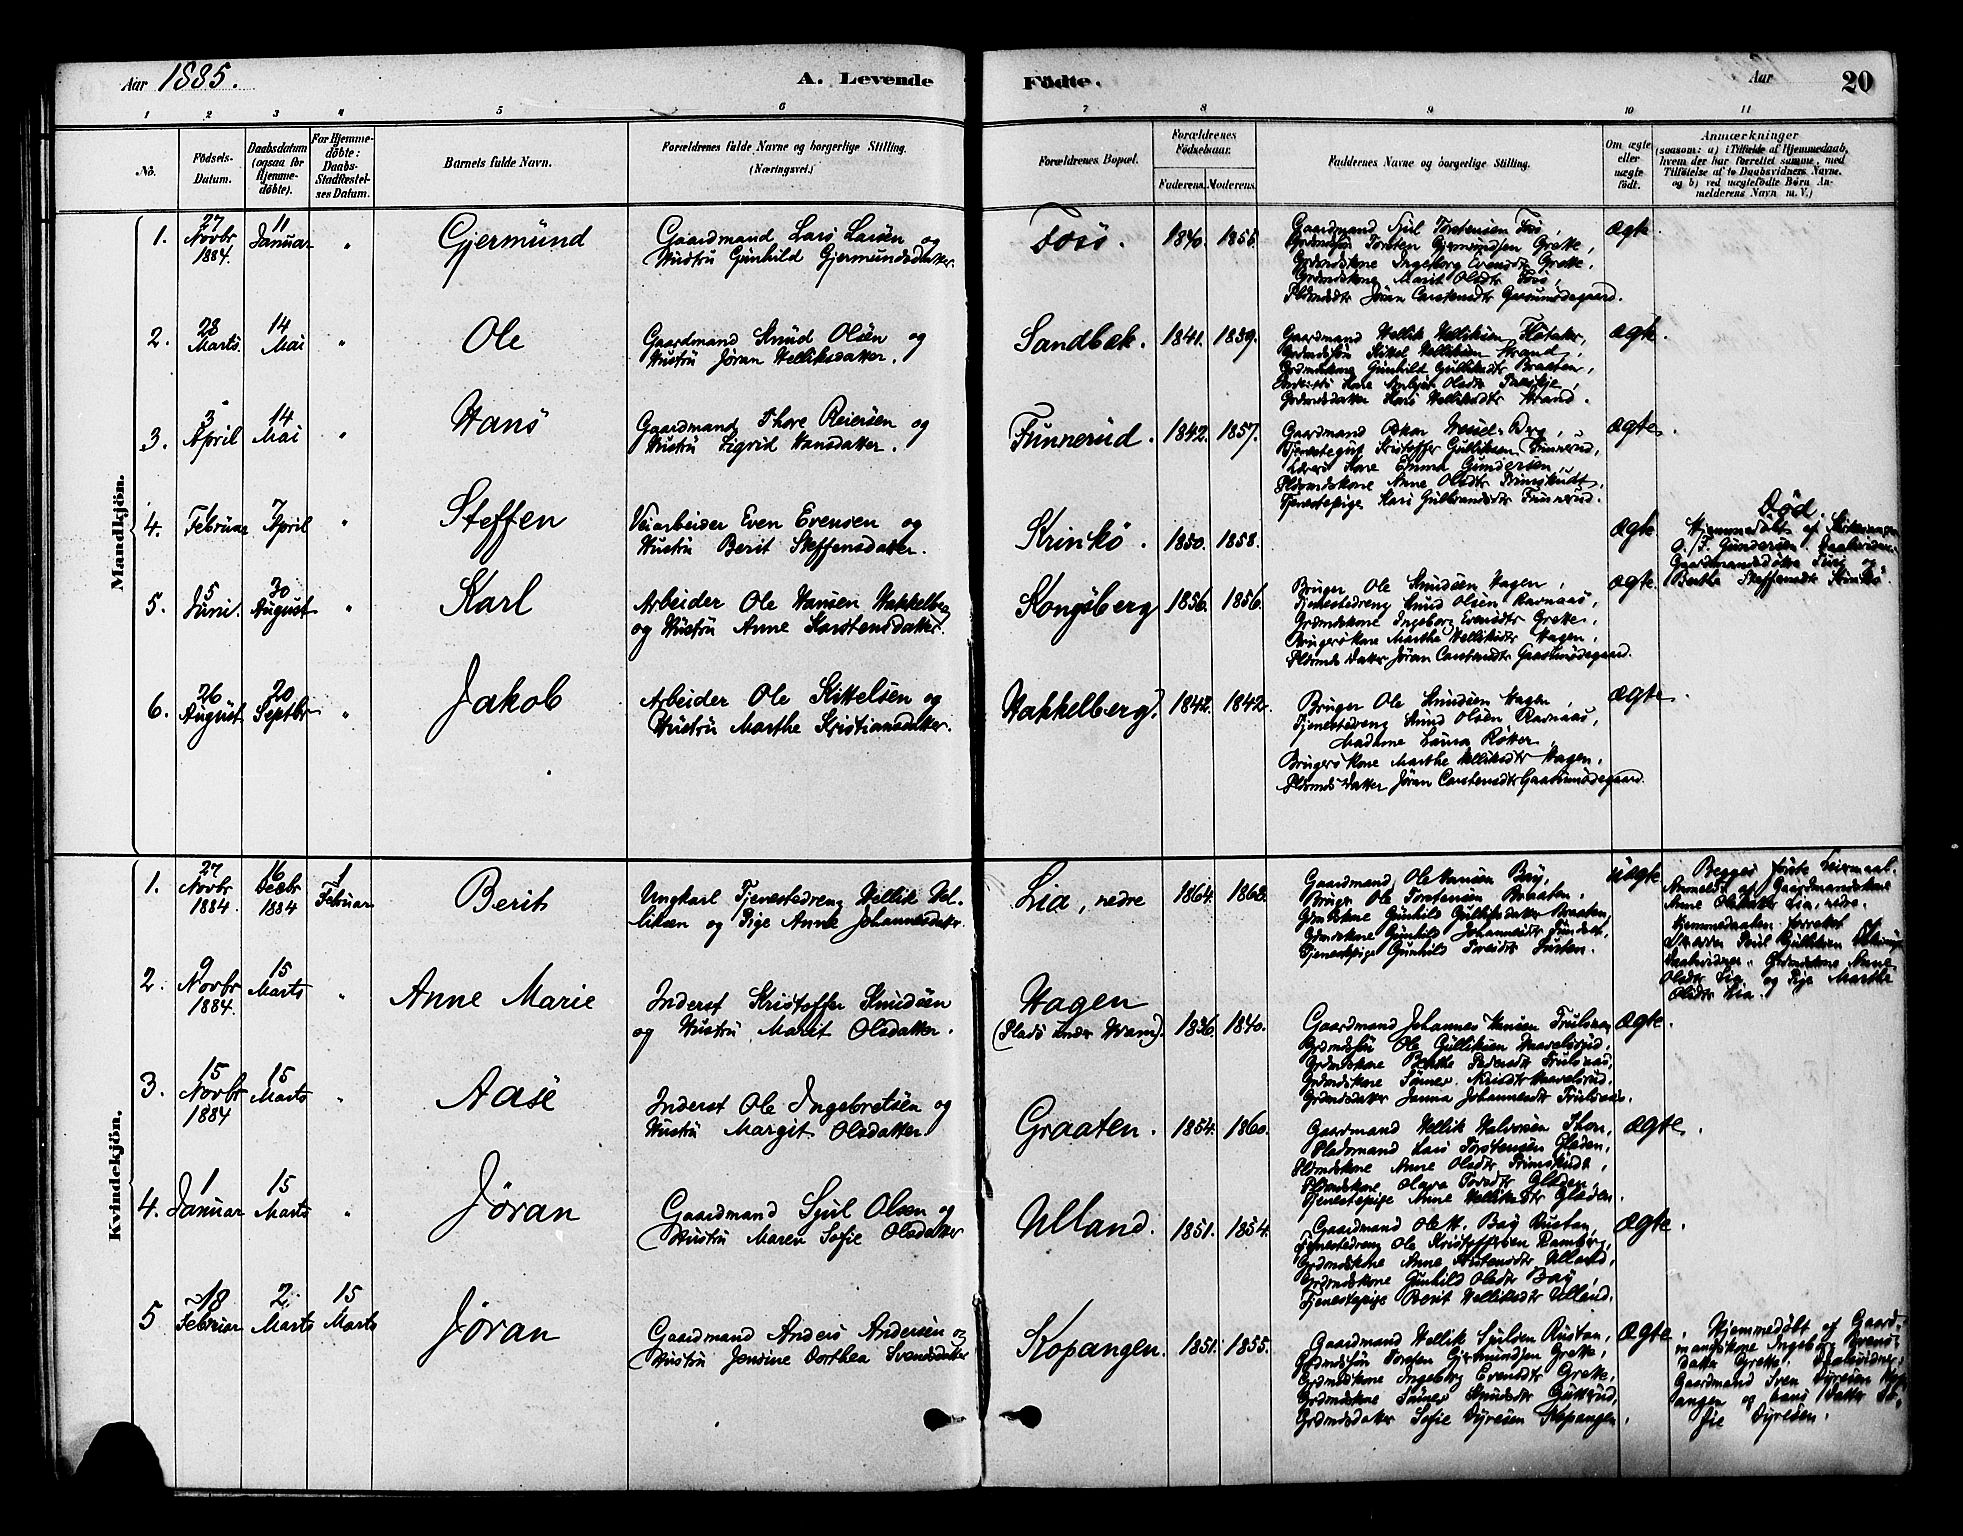 Aar 1885.
A. Levende Födte.
Aar
20
1 2 3 4 5 6 7 8 9 10 11
No.
Födsels-Datum.
Daabsdatum (ogsaa for Hjemme-döbte).
For Hjemme-döbte: Daabs-Stadfæstel-ses Datum.
Barnets fulde Navn.
Forældrenes fulde Navne og borgerlige Stilling. (Næringsvei.)
Forældrenes Bopæl.
Forældrenes Födselsaar.
Faderens. Moderens.
Faddernes Navne og borgerlige Stilling.
Om ægte eller uægte födt.
Anmærkninger
(saasom: a) i Tilfælde af Hjemmedaab, hvem der har forrettet samme, med Tilföielse af to Daabsvidners Navne. og b) ved uægtefödte Börn An-melderens Navn m. V.)
Mandkjön.
1. 27 Novbr 1884. 11 Januar " Gjermund
Gaardmand Lars Larsen og
Hustru Gunhild Gjermundsdatter.
Foss. 1840. 1855.
Gaardmand Sjul Torstensen Foss,
Grdmdsøn Torsten Gjermundsen Grette,
Grdmdskone Ingeborg Evensdtr Grette,
Grdmdskone Marit Olsdtr Foss,
Pldsmdsdtr Jøran Carstensdtr Gaasumødegaard.
ægte.
2. 28 Marts. 14 Mai " Ole
Gaardmand Knud Olsen og
Hustru Jøran Helliksdatter.
Sandbæk. 1841. 1839.
Gaardmand Hellik Helliksen
Grdmdsøn Kittel Helliksen Strand,
Grdmdskone Gunhild Gulliksdtr Braaten,
Grdmdsdatter Kari Helliksdtr Strand.
ægte.
3. 3 April 14 Mai " Hans
Gaardmand Thore Reiersen og
Hustru Sigrid Hansdatter.
Funnerud. 1842. 1857.
Gaardmand Oskar
Tjenestegut Kristoffer Gulliksen Funnerud,
Lærers Kone Emma Gundersen,
Pldsmdskone Anne Olsdtr Frimskudt,
Tjenestepige Kari Gulbrandsdtr Funnerud.
ægte.
4. 1 Februar 7 April " Steffen
Veiarbeider Even Evensen og
Hustru Berit Steffensdatter.
Krinkö. 1850. 1858.
ægte.
Død.
Hjemmedøbt af Kirkesanger
O. F. Gundersen. Daabsvidner
Gaardmandsdøtre Turi og
Berthe Steffensdtr Krinkö
5. 5 Juni. 30 August " Karl
Arbeider Ole Hansen Hakkelberg
og Hustru Anne Karstensdatter.
Kongsberg 1856. 1856.
Bruger Ole Knudsen Hagen,
Tjenestedreng Knud Olsen Ravnaas,
Grdmdskone Ingeborg Evensdtr Grette,
Brugerskone Marthe Helliksdtr Hagen,
Pldsmds Datter Jøran Carstensdtr Gaasumødegaard.
ægte.
6. 26 August 20 Septbr " Jakob
Arbeider Ole Kittelsen og
Hustru Marthe Kristiansdatter.
Hakkelberg. 1842. 1842.
Bruger Ole Knudsen Hagen,
Tjenestedreng Knud Olsen Ravnaas,
Madame Laura Røtter,
Brugerskone Marthe Helliksdtr Hagen,
Pldsmds Datter Jøran Carstensdtr Gaasumødegaard.
ægte.
Kvindekjön.
1. 27 Novbr 1884. 16 Decbr 1884 1 Februar Berit
Ungkarl Tjenestedreng Hellik Hel-
liksen og Pige Anne Johannesdatter.
Lia, nedre 1864. 1863.
Gaardmand Ole Hansen Bay,
Bruger Ole Torstensen Braaten,
Grdmdskone Gunhild Gulliksdatter Braaten,
Grdmdskone Gunhild Johannesdtr
Tjenestepige Gunhild
uægte
Begges første Leiermaal.
Anmeldt af Gaardmandskone
Anne Olsdatter Lia, nedre.
Hjemmedaaben forrettet af
Skrædder Poul Gulliksen
Daabsvidner: Grdmdskone Anne
Olsdtr Lia og Pige Marthe
Olsdtr Lia.
2. 9 Novbr 1884. 15 Marts " Anne Marie
Inderst Kristoffer Knudsen
og Hustru Marit Olsdatter.
Hagen
(Plads under Wram). 1836. 1840.
Gaardmand Johannes Hansen Trulsrud,
Grdmdsøn Ole Gulliksen Haavelsrud,
Grdmdskone Berthe Pedersdtr Trulsrud,
Grdmdskone Sønnev Haavelsrud,
Grdmdsdatter Janna Johannesdtr Trulsrud.
ægte.
3. 15 Novbr 1884 15 Marts " Aase
Inderst Ole Ingebretsen og
Hustru Margit Olsdatter
Graaten. 1854. 1860.
Gaardmand Hellik Halvorsen Thon,
Pladsmand Lars Torstensen Gladen,
Pldsmdskone Anne Olsdtr Frimskudt,
Pldsmdskone Olava Gladen,
Tjenestepige Anne Helliksdtr Gladen.
ægte.
4. 1 Januar 15 Marts " Jøran
Gaardmand Sjul Olsen og
Hustru Maren Sofie Olsdatter
Ulland. 1851. 1854.
Gaardmand Ole H. Bay Rustan,
Tjenestedreng Ole Kristoffersen Ramberg,
Grdmdskone Anne Ulland,
Grdmdskone Gunhild Olsdtr Bay,
Tjenestepige Berit Helliksdtr Ulland.
ægte.
5 18 Februar 2 Marts 15 Marts Jøran
Gaardmand Anders Andersen og
Hustru Jensine Dorthea Svendsdatter
Kopangen. 1851. 1855.
Gaardmand Hellik Sjulsen Rustan,
Grdmdsøn Torsten Gjermundsen Grette,
Grdmdskone Ingeborg Evensdtr Grette,
Grdmdskone Sønnev Knudsdtr Gutterud,
Grdmdsdatter Sofie Dyresen Kopangen.
ægte.
Hjemmedøbt af Gaard-
mandskone Ingeborg Evens-
datter Grette. Daabsvidner:
Gaardmand Sven Dyresen Kop-
angen og hans Datter So-
fie Dyresen.